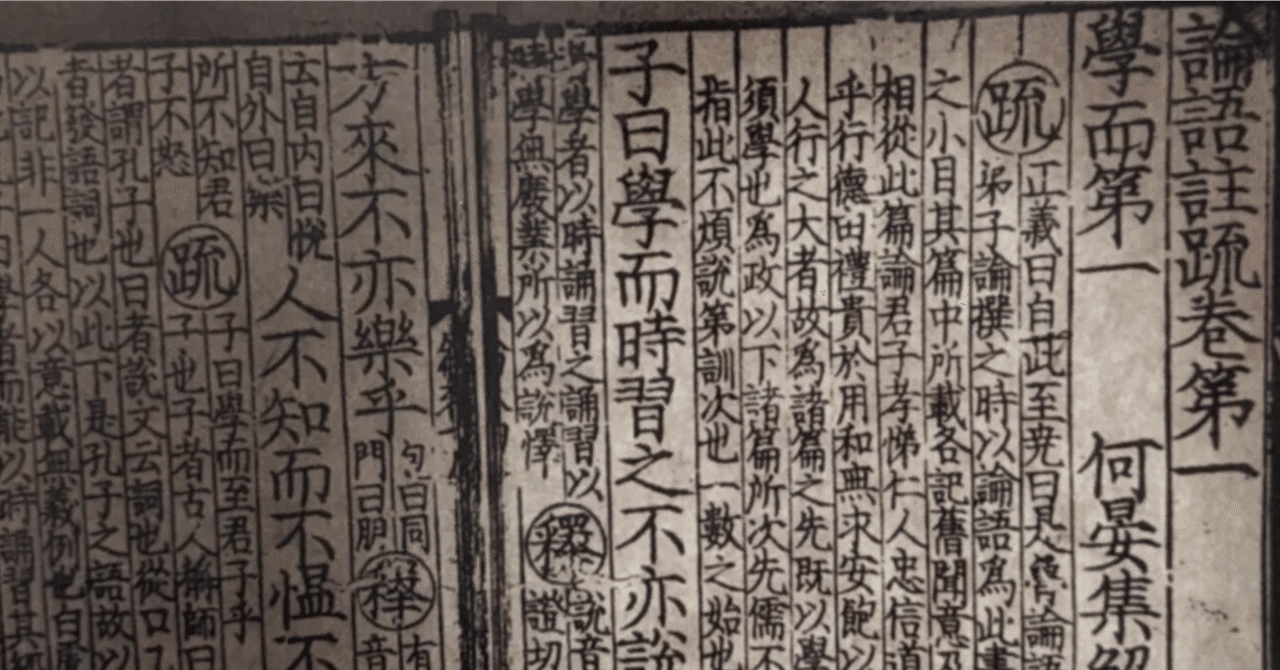 論語註疏卷第一
學而第一 何晏集解
疏 正義曰自此至堯曰是魯論語
弟子論撰之時以論語為此書
之小目其篇中所載各記舊聞意及
相從此篇論君子孝悌仁人忠信道
乎行德由禮貴於用和無求安飽以
人行之大者故為諸篇之先既以學
須學也為政以下諸篇所次先儒不
指此不煩說第訓次也一數之始也
子曰學而時習之不亦說
學者以時誦習之誦習以 釋 說音
時學無廢業所以為說懌 證切
方來不亦樂乎 包曰同 釋 有
門曰朋 音
云自內曰悅 人不知而不慍不
自外曰樂
所不知君 疏 子曰學而至君子乎
子不怒 子也子者古人稱師曰
者謂孔子也曰者說文云詞也從口乙
者發語詞也以此下是孔子之語故以
以記非一人各以意載無義例也白虎
曰學者而能以時誦習其經